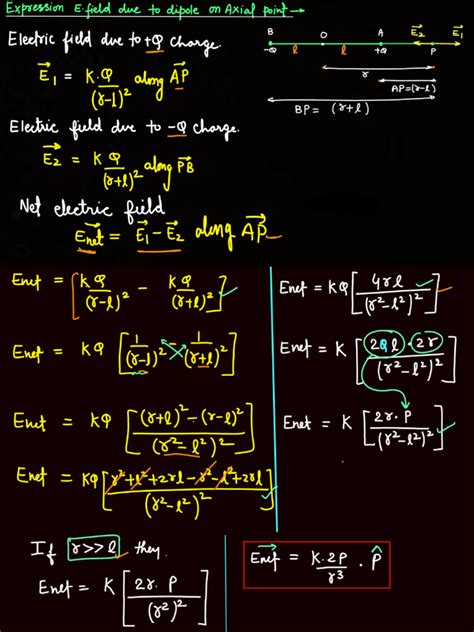 Expression E.field due to dipole on Axial point →
B O A E⃗₂ E⃗₁
-Q l l +Q P
r
AP=(r-l)
BP= (r+l)
Electric field due to +Q charge.
E⃗₁ = K.Q/(r-l)² along AP⃗
Electric field due to -Q charge.
E⃗₂ = K Q/(r+l)² along PB⃗
Net electric field
E⃗net = E⃗₁ - E⃗₂ along AP⃗
Enet = [KQ/(r-l)² - KQ/(r+l)²]
Enet = KQ [1/(r-l)² - 1/(r+l)²]
Enet = KQ [((r+l)² - (r-l)²)/(r²-l²)²]
Enet = KQ [(r²+l²+2rl-r²-l²+2rl)/(r²-l²)²]
Enet = KQ [4rl/(r²-l²)²]
Enet = K [2Ql·2r/(r²-l²)²]
Enet = K [2r.P/(r²-l²)²]
If r>>l they
Enet = K [2r.P/(r²)²]
E⃗net = K.2P/r³ . P̂